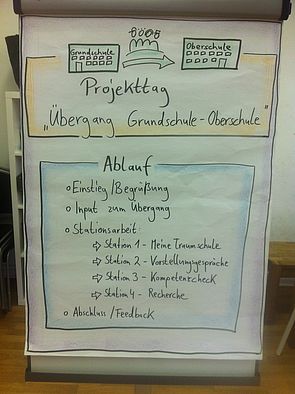 Grundschule
Oberschule
Projekttag
"Übergang Grundschule-Oberschule"
Ablauf
Einstieg/Begrüßung
Input zum Übergang
Stationsarbeit
Station 1 - Meine Traumschule
Station 2 - Vorstellungsgespräche
Station 3 - Kompetenzcheck
Station 4 - Recherche
Abschluss/Feedback